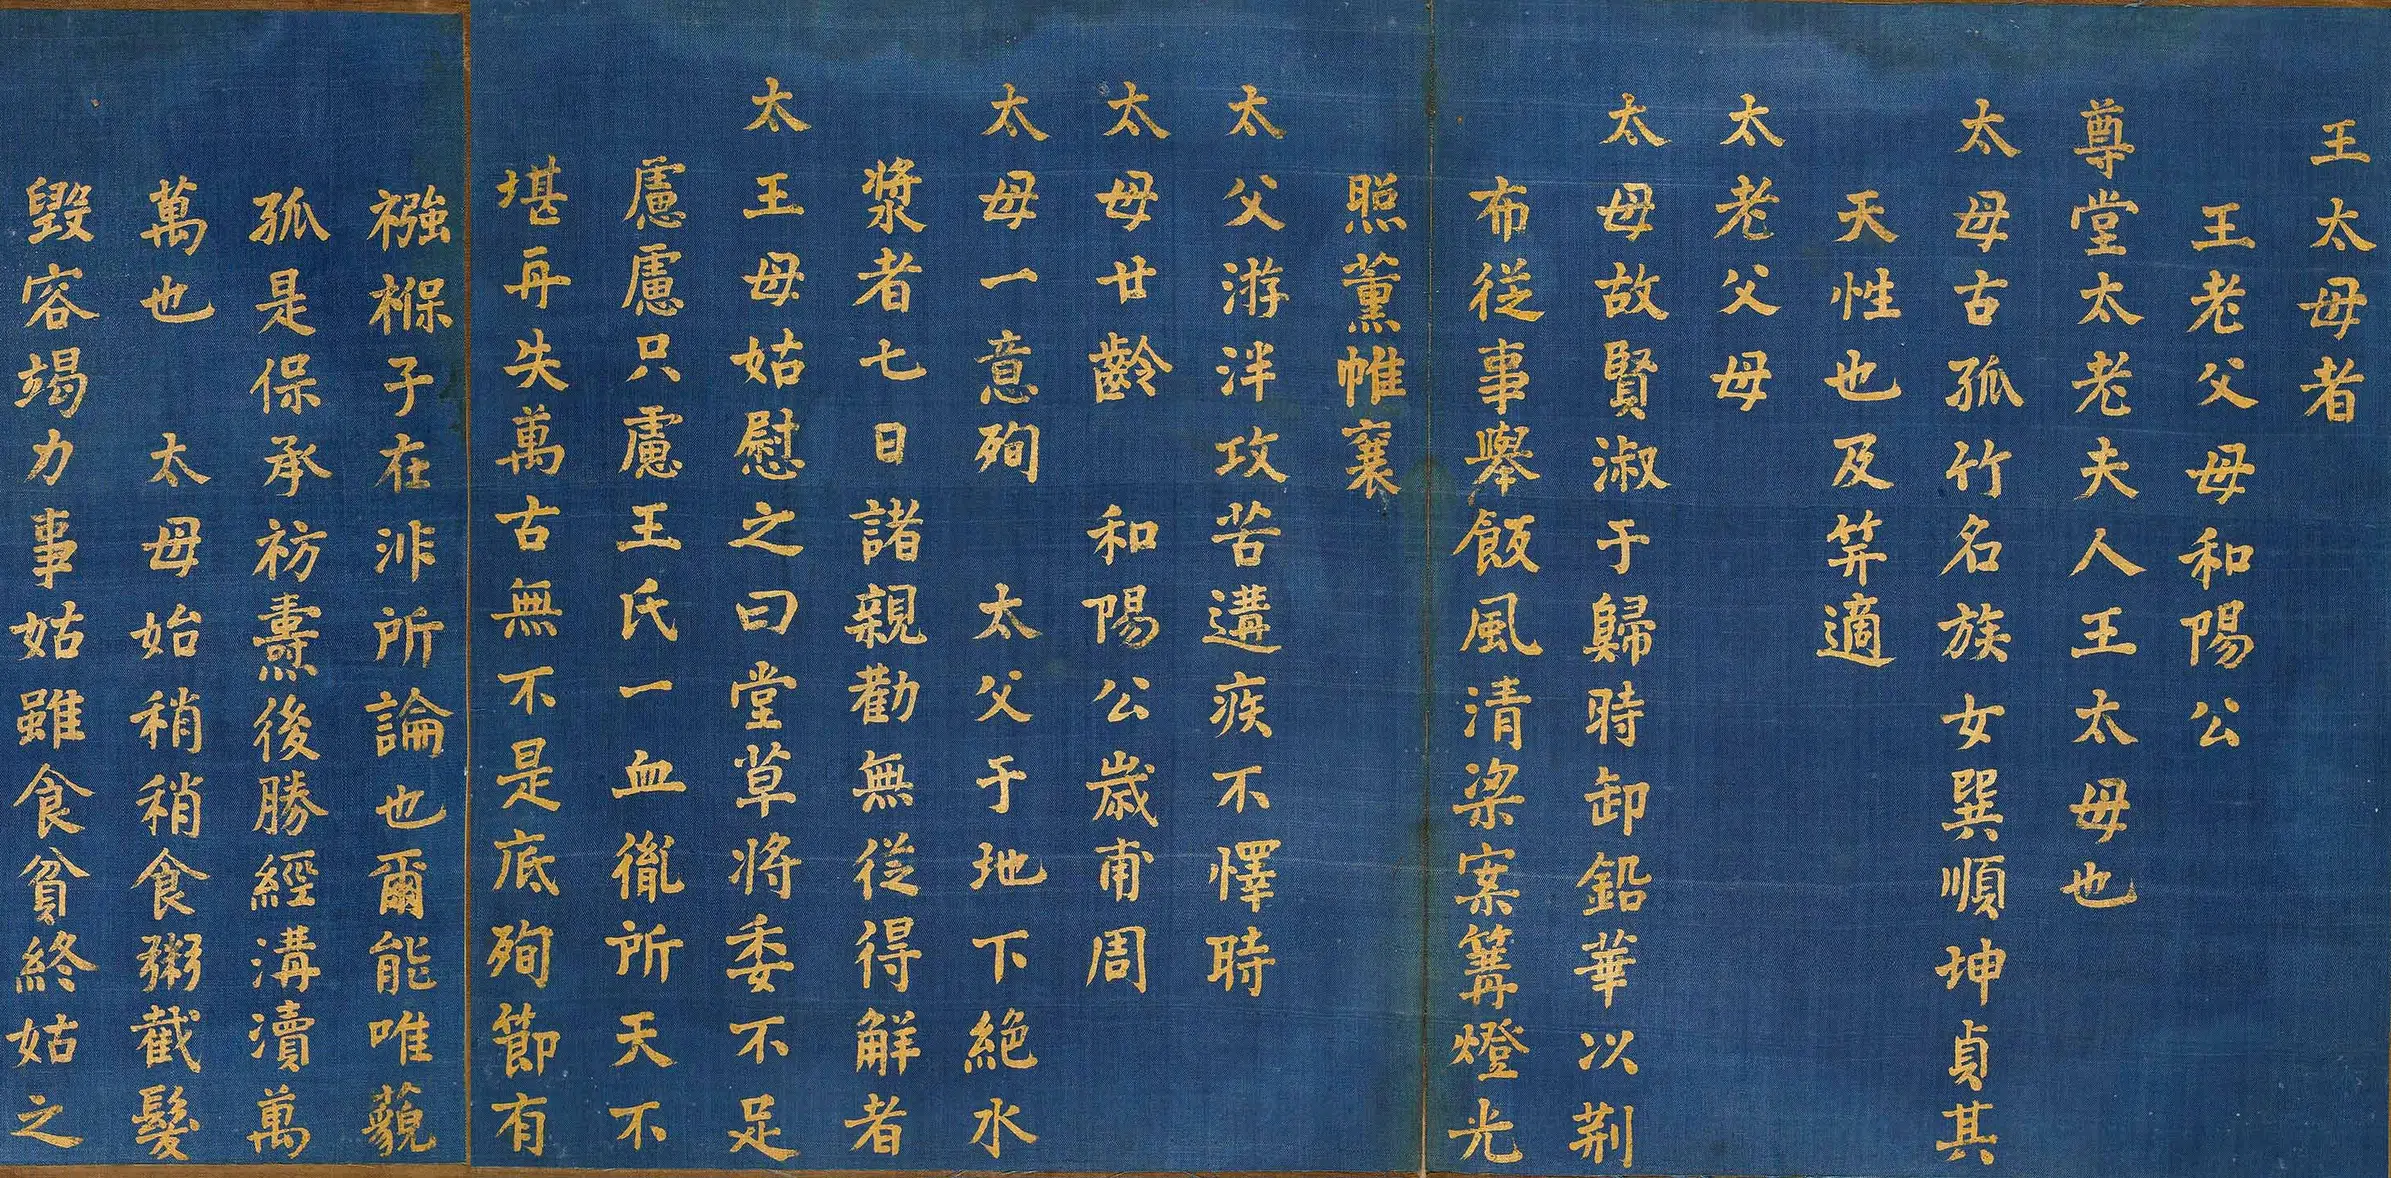 王太母者
王老父母和陽公
尊堂太老夫人王太母也
太母古孤竹名族女巽順坤貞其
天性也及笄適
太老父母
太母故賢淑于歸時卸鉛華以荆
布従事舉飯風清梁案篝燈光
照薰帷襄
太父游泮攻苦遘疾不懌時
太母廿齡 和陽公歲甫周
太母一意殉 太父于地下絶水
漿者七日諸親勸無従得解者
太王母姑慰之曰堂草将委不足
慮慮只慮王氏一血胤所天不
堪再失萬古無不是底殉節有
襁褓子在非所論也爾能唯藐
孤是保承祊燾後勝經溝瀆萬
萬也 太母始稍稍食粥截髮
毀容竭力事姑雖食貧終姑之